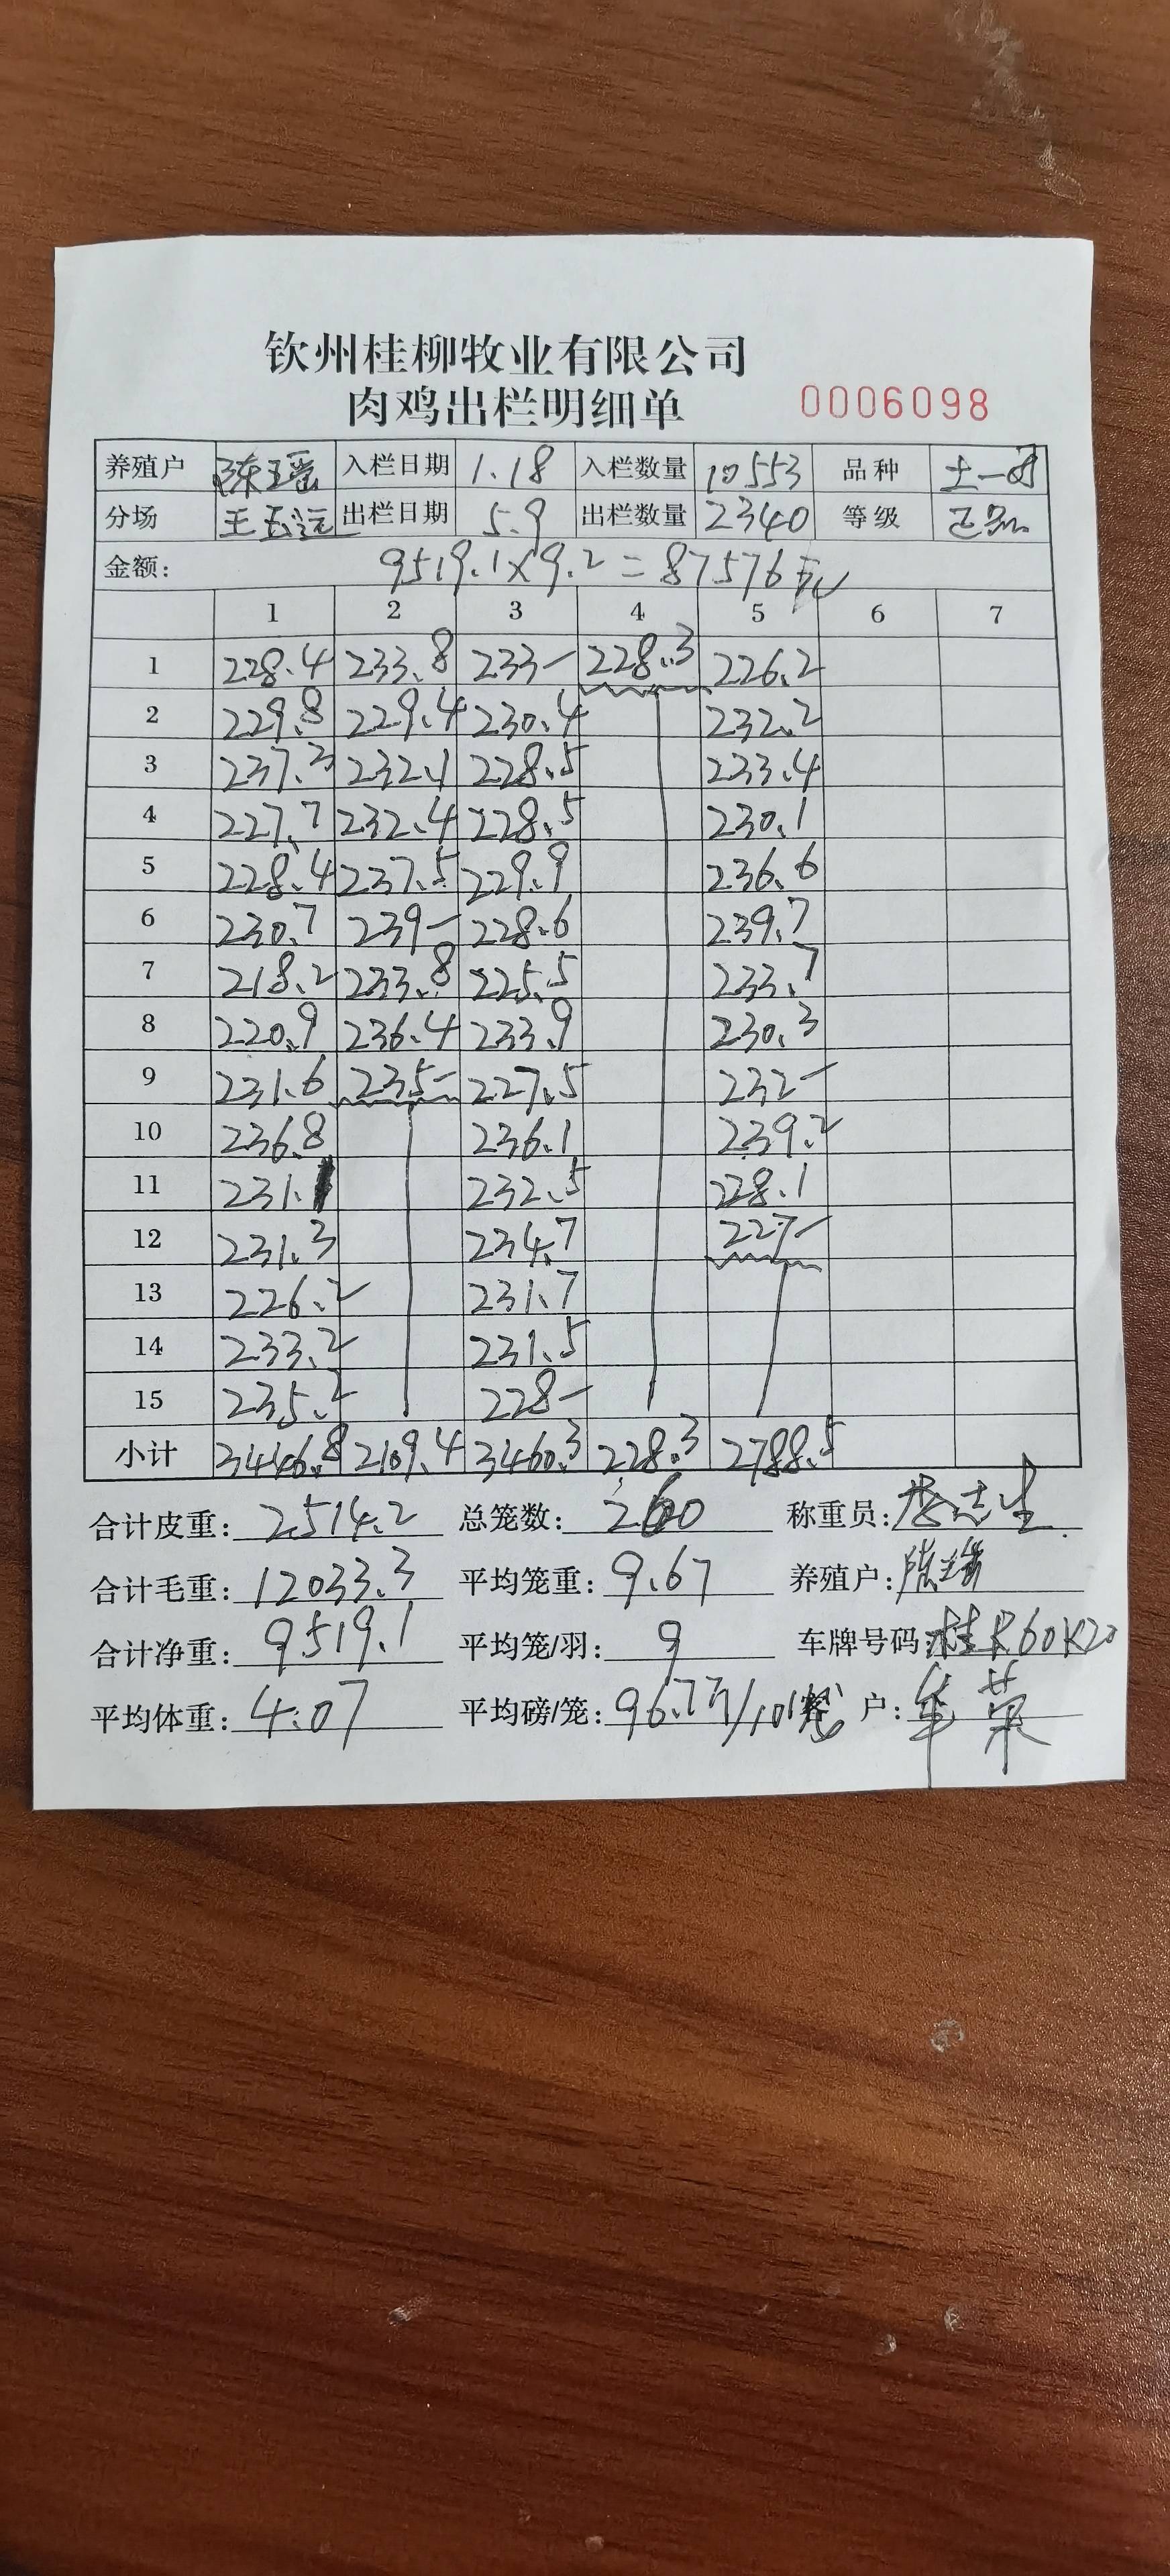 钦州桂柳牧业有限公司
肉鸡出栏明细单 0006098
养殖户 陈瑶 入栏日期 1.18 入栏数量 10553 品种 土一
分场 王玉 出栏日期 5.9 出栏数量 2340 等级 正品
金额: 9519.1×9.2=87576元
1 2 3 4 5 6 7
1 228.4 233.8 233- 228.3 226.2
2 229.8 229.4 230.4 232.2
3 237.3 232.1 228.5 233.4
4 227.7 232.4 228.5 230.1
5 228.4 237.5 229.9 236.6
6 230.7 239- 228.6 239.7
7 218.2 233.8 225.5 233.7
8 220.9 236.4 233.9 230.3
9 231.6 235- 227.5 232-
10 236.8 236.1 239.2
11 231.1 232.5 228.1
12 231.3 234.7 227-
13 226.2 231.7
14 233.2 231.5
15 235.2 228-
小计 3446.8 2109.4 3460.3 228.3 2788.5
合计皮重: 2514.2 总笼数: 260 称重员:
合计毛重: 12033.3 平均笼重: 9.67 养殖户: 陈瑶
合计净重: 9519.1 平均笼/羽: 9 车牌号码: 桂R60K20
平均体重: 4.07 平均磅/笼: 96.7斤/10笼 客户: 荣